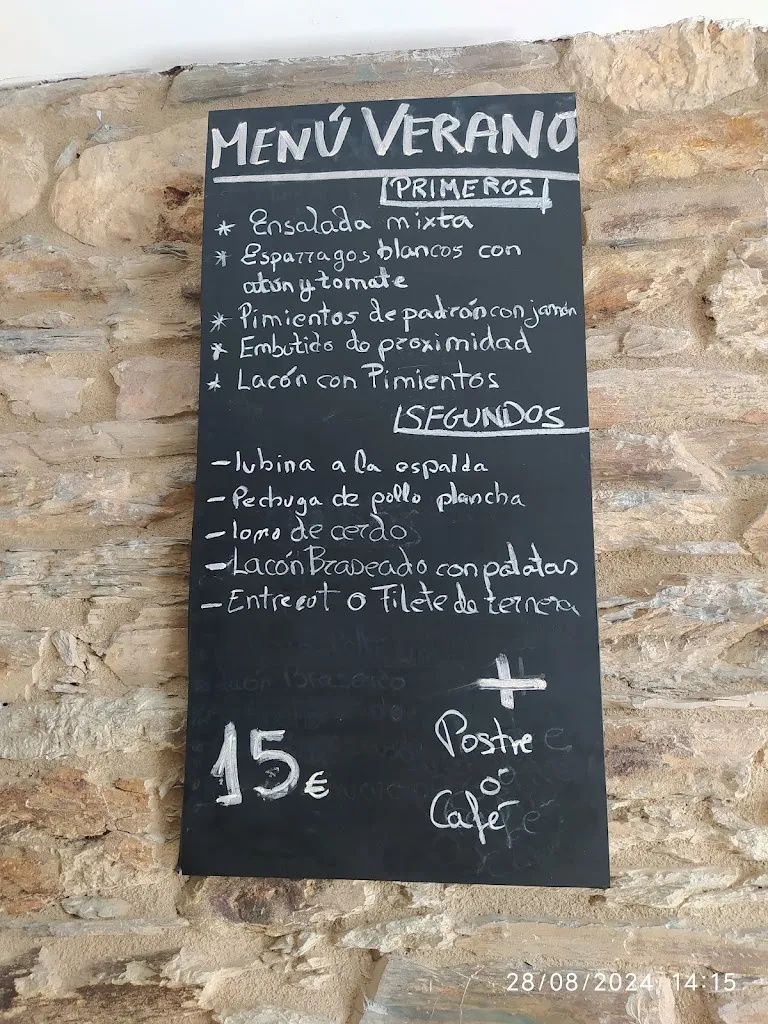 MENÚ VERANO
PRIMEROS
* Ensalada mixta
* Esparragos blancos con
atún y tomate
* Pimientos de padrón con jamón
* Embutido de proximidad
* Lacón con Pimientos
SEGUNDOS
- lubina a la espalda
- Pechuga de pollo plancha
- lomo de cerdo
- Lacón Braseado con patatas
- Entrecot o Filete de ternera
+
Postre
o
Café
15€
28/08/2024 14:15